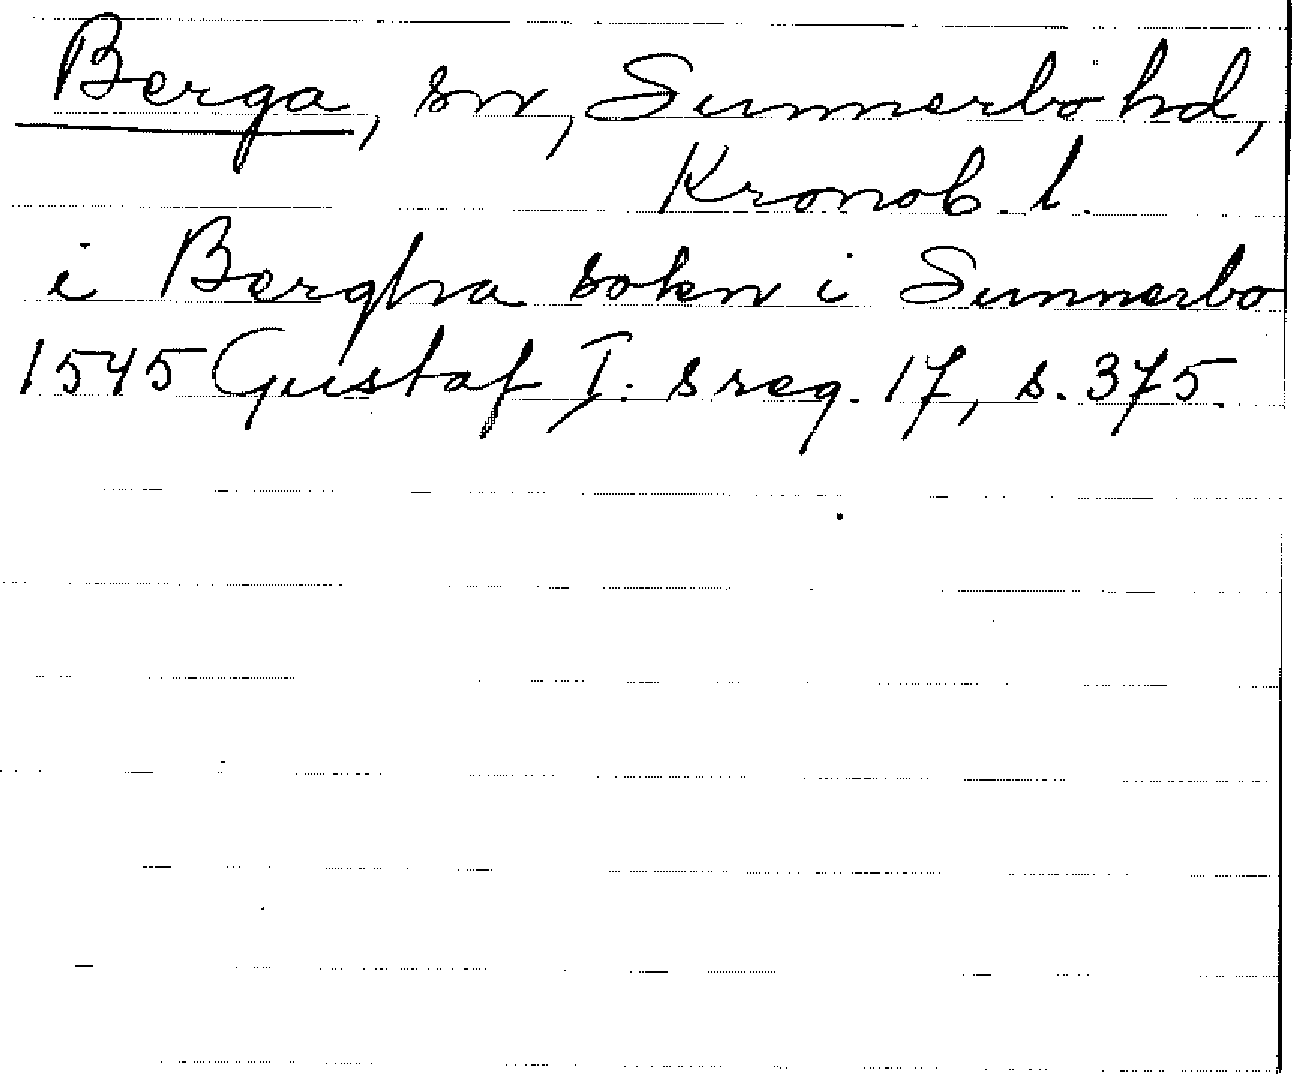 Berga, sn, Sunnerbö hd,
Kronob. l.
i Bergha sokn i Sunnerbo
1545 Gustaf I:s reg. 17, s. 375.